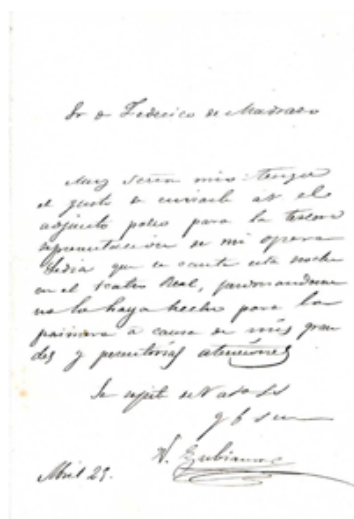 Sr D Federico de Madrazo
Muy Señor mio: tengo
el gusto de enviarle á V. el
adjunto palco para la tercera
representacion de mi opera
Ledia que se canta esta noche
en el Teatro Real, perdonandome
no lo haya hecho para la
primera a causa de mis gran
des y perentorias atenciones
Se repite de V. a. s. s.
q b s m
V. Zubiaurre
Abril 25.